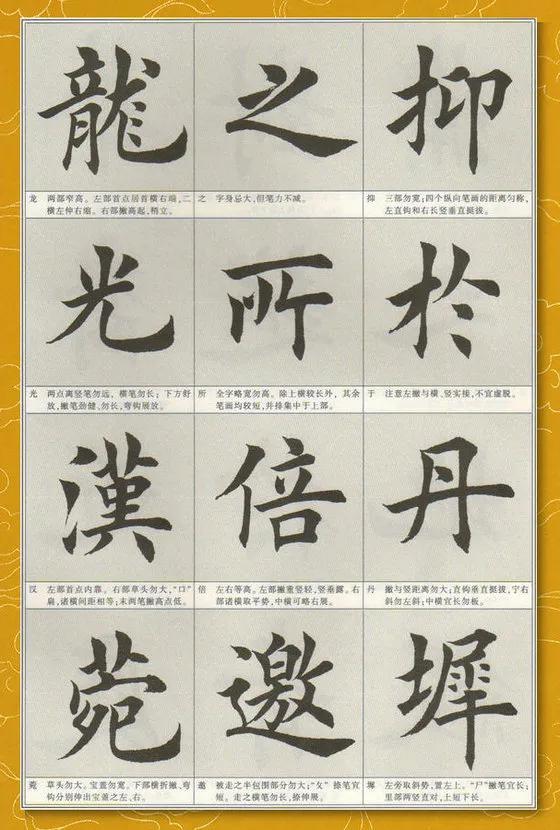 龍
之
抑
龙 两部窄高。左部首点居首横右端,二
横左伸右缩。右部撇高起,稍立。
之 字身忌大,但笔力不减。
抑 三部勿宽;四个纵向笔画的距离匀称,
左直钩和右长竖垂直挺拔。
光
所
於
光 两点离竖笔勿远,横笔勿长;下方舒
放,撇笔劲健、勿长,弯钩展放。
所 全字略宽勿高。除上横较长外,其余
笔画均较短,并排集中于上部。
于 注意左撇与横、竖实接,不宜虚脱。
漢
倍
丹
汉 左部首点内靠。右部草头勿大,“口”
扁,诸横间距相等;末两笔撇高点低。
倍 左右等高。左部撇重竖轻,竖垂露。右
部诸横取平势,中横可略右展。
丹 撇与竖距离勿大;直钩垂直挺拔,宁右
斜勿左斜;中横宜长勿板。
菀
邀
墀
菀 草头勿大。宝盖勿宽。下部横折撇、弯
钩分别伸出宝盖之左、右。
邀 被走之半包围部分勿大;“攵”捺笔宜
短。走之横笔勿长,捺伸展。
墀 左旁取斜势,置左上。“尸”撇笔宜长;
里部两竖直对,上短下长。